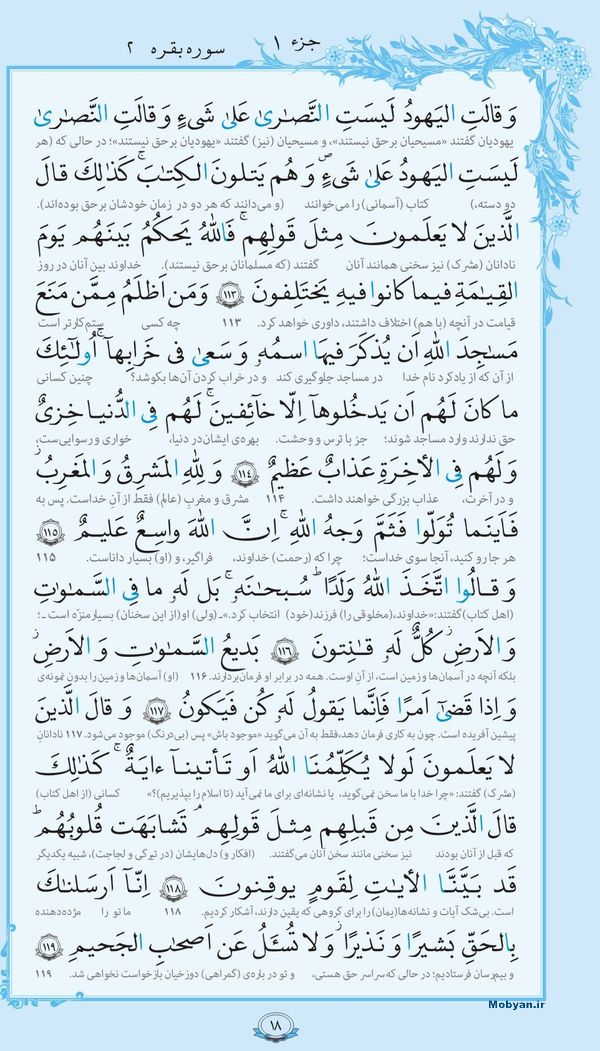 جزء ۱
سوره بقره ۲
وَ قالَتِ الیَهودُ لَیسَتِ النَّصٰرىٰ عَلىٰ شَىءٍ وَ قالَتِ النَّصٰرىٰ
یهودیان گفتند «مسیحیان بر حق نیستند»، و مسیحیان (نیز) گفتند «یهودیان بر حق نیستند»؛ در حالی که (هر
لَیسَتِ الیَهودُ عَلىٰ شَىءٍ ۙ وَ هُم یَتلونَ الکِتٰبَ ۗ کَذٰلِكَ قالَ
دو دسته،) کتاب (آسمانی) را می‌خوانند (و می‌دانند که هر دو در زمان خودشان برحق بوده‌اند).
الَّذینَ لا یَعلَمونَ مِثلَ قَولِهِم ۚ فَاللهُ یَحکُمُ بَینَهُم یَومَ
نادانان (مشرک) نیز سخنی همانند آنان گفتند (که مسلمانان بر حق نیستند). خداوند بین آنان در روز
القِیٰمَةِ فیما کانوا فیهِ یَختَلِفونَ ۱۱۳ وَ مَن اَظلَمُ مِمَّن مَنَعَ
قیامت در آنچه (با هم) اختلاف داشتند، داوری خواهد کرد. ۱۱۳ چه کسی ستم‌کارتر است
مَسٰجِدَ اللهِ اَن یُذکَرَ فیهَا اسمُهٗ وَ سَعىٰ فى خَرابِها ۚ اُولٰئِكَ
از آن که از یادکرد نام خدا در مساجد جلوگیری کند و در خراب کردن آن‌ها بکوشد؟ چنین کسانی
ما کانَ لَهُم اَن یَدخُلوهآ اِلّا خآئِفینَ ۚ لَهُم فِى الدُّنیا خِزىٌ
حق ندارند وارد مساجد شوند؛ جز با ترس و وحشت. بهره‌ی ایشان در دنیا، خواری و رسوایی‌ست،
وَ لَهُم فِى الأٰخِرَةِ عَذابٌ عَظیمٌ ۱۱۴ وَ لِلّٰهِ المَشرِقُ وَ المَغرِبُ ۚ
و در آخرت، عذاب بزرگی خواهند داشت. ۱۱۴ مشرق و مغربِ (عالم) فقط از آنِ خداست. پس به
فَاَینَما تُوَلّوا فَثَمَّ وَجهُ اللهِ ۚ اِنَّ اللهَ واسِعٌ عَلیمٌ ۱۱۵
هر جا رو کنید، آنجا سوی خداست؛ چرا که (رحمت) خداوند، فراگیر، و (او) بسیار داناست. ۱۱۵
وَ قالُوا اتَّخَذَ اللهُ وَلَدًا ۗ سُبحٰنَهٗ ۖ بَل لَهٗ ما فِى السَّمٰوٰتِ
(اهل کتاب) گفتند: «خداوند، (مخلوقی را) فرزند (خود) انتخاب کرد.»ـ (ولی) او (از این سخنان) بسیار منزّه است ـ؛
وَ الاَرضِ ۖ کُلٌّ لَهٗ قٰنِتونَ ۱۱۶ بَدیعُ السَّمٰوٰتِ وَ الاَرضِ ۖ
بلکه آنچه در آسمان‌ها و زمین است، از آنِ اوست. همه در برابر او فرمان‌بردارند. ۱۱۶ (او) آسمان‌ها و زمین را بدون نمونه‌ی
وَ اِذا قَضىٰٓ اَمرًا فَاِنَّما یَقولُ لَهٗ کُن فَیَکونُ ۱۱۷ وَ قالَ الَّذینَ
پیشین آفریده است. چون به کاری فرمان دهد، فقط به آن می‌گوید «موجود باش» پس (بی‌درنگ) موجود می‌شود. ۱۱۷ نادانانِ
لا یَعلَمونَ لَولا یُکَلِّمُنَا اللهُ اَو تَأتینآ ءایَةٌ ۗ کَذٰلِكَ
(مشرک) گفتند: «چرا خدا با ما سخن نمی‌گوید، یا نشانه‌ای برای ما نمی‌آید (تا اسلام را بپذیریم)؟» کسانی (از اهل کتاب)
قالَ الَّذینَ مِن قَبلِهِم مِثلَ قَولِهِم ۘ تَشابَهَت قُلوبُهُم ۗ
که قبل از آنان بودند نیز سخنی مانند سخن آنان می‌گفتند. (افکار و) دل‌هایشان (در تیرگی و لجاجت)، شبیه یکدیگر
قَد بَیَّنَّا الأٰیٰتِ لِقَومٍ یوقِنونَ ۱۱۸ اِنّآ اَرسَلنٰكَ
است. بی‌شک آیات و نشانه‌ها(یمان) را برای گروهی که یقین دارند، آشکار کردیم. ۱۱۸ ما تو را مژده‌دهنده
بِالحَقِّ بَشیرًا وَ نَذیرًا ۖ وَ لا تُسئَلُ عَن اَصحٰبِ الجَحیمِ ۱۱۹
و بیم‌رسان فرستادیم؛ در حالی که سراسر حق هستی، و تو در باره‌ی (گمراهی) دوزخیان بازخواست نخواهی شد. ۱۱۹
Mobyan.ir
۱۸